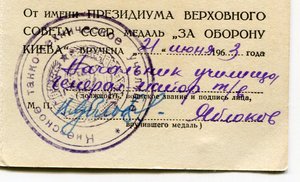 От имени ПРЕЗИДИУМА ВЕРХОВНОГО
СОВЕТА СССР МЕДАЛЬ „ЗА ОБОРОНУ
КИЕВА“ ВРУЧЕНА „21“ июня 1963 года
Начальник училища,
генерал-майор т/в
(должность, воинское звание и подпись лица,
М. П.
Яблоков
вручившего медаль)
Киевское танко
училище